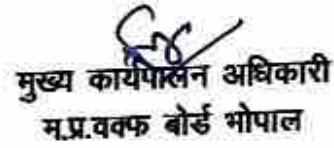 मुख्य कार्यपालन अधिकारी
म.प्र.वक्फ बोर्ड भोपाल